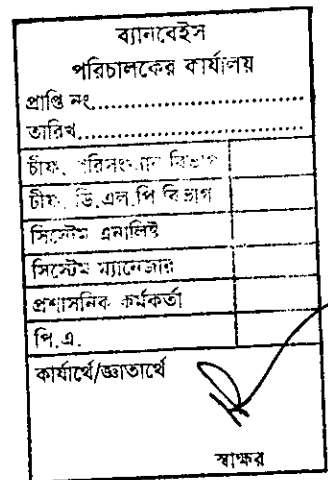 ব্যানবেইস
পরিচালকের কার্যালয়
প্রাপ্তি নং..............................
তারিখ................................
চীফ, পরিসংখ্যান বিভাগ
চীফ, ডি.এল.পি বিভাগ
সিস্টেম এনালিষ্ট
সিস্টেম ম্যানেজার
প্রশাসনিক কর্মকর্তা
পি.এ.
কার্যার্থে/জ্ঞাতার্থে
স্বাক্ষর